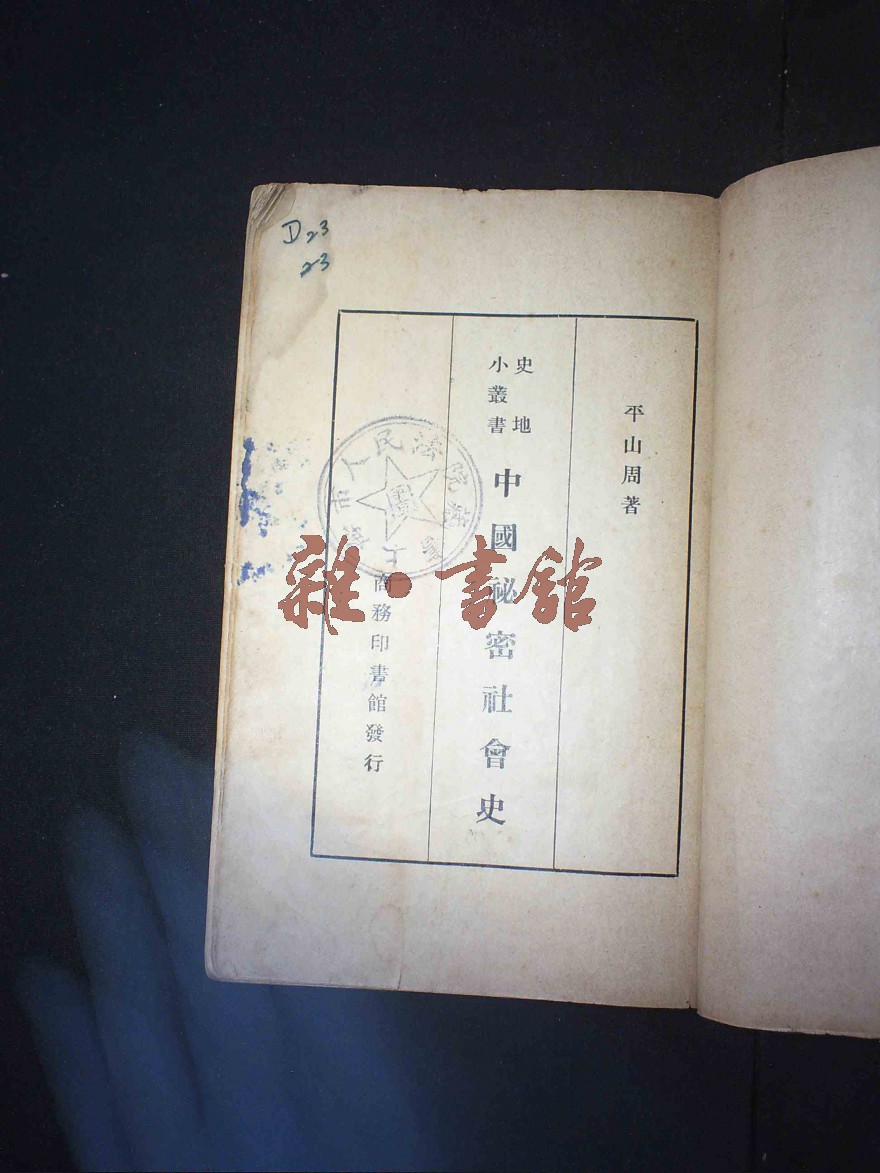 D23
23
平山周著
史地
小叢書
中國祕密社會史
商務印書館發行
市人民法院
雜·書館